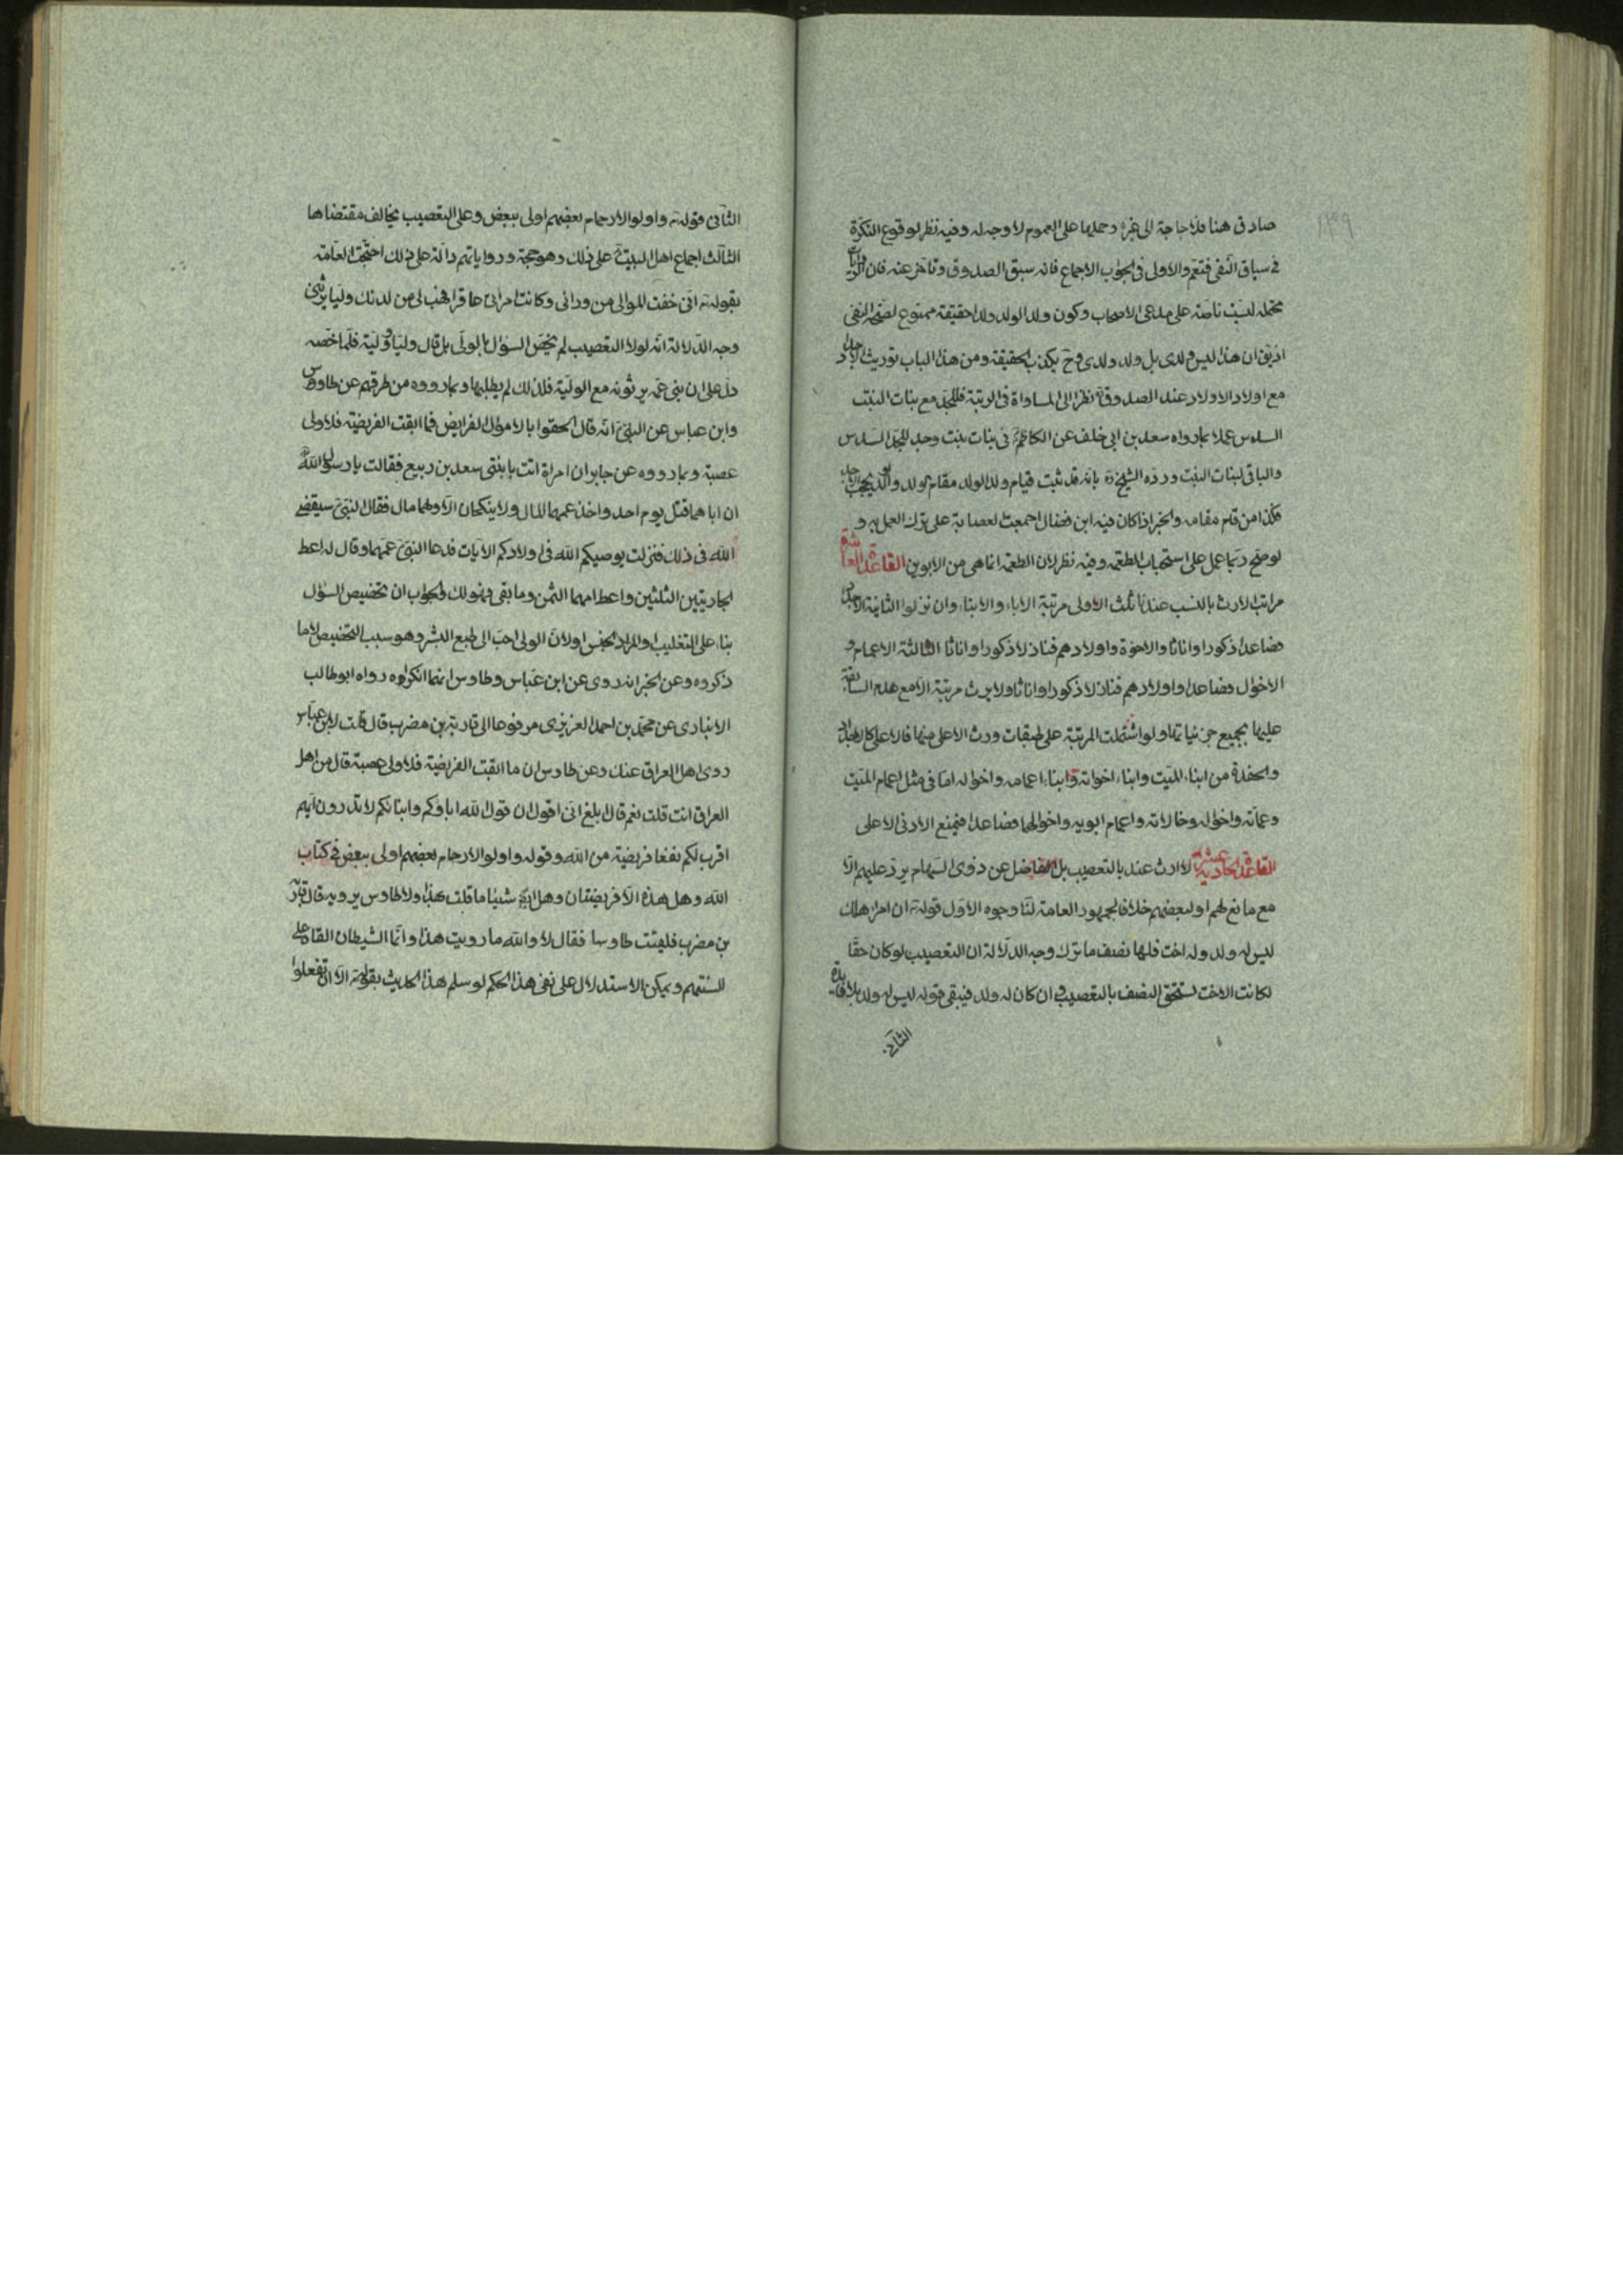 صادق هنا فلا حاجة الى غيره وحملها على العموم لا وجه له وفيه نظر لوقوع النكرة
فى سياق النفى فتعم والاولى فى الجواب الاجماع فانه سبق الصدوق وتاخر عنه فان الروايات
محتملة ليست ناصة على مدعى الاصحاب وكون ولد الولد ولدا حقيقة ممنوع لصحة النفى
اذ يق ان هذا ليس ولدى بل ولد ولدى وح يكذب الحقيقة ومن هذا الباب توريث الاجداد
مع اولاد الاولاد عند الصدوق نظرا الى المساواة فى الرتبة فللجد مع بنات البنت
السدس عملا بما رواه سعد بن ابى خلف عن الكاظم فى بنات بنت وجد للجد السدس
والباقى لبنات البنت ورده الشيخ ره بانه قد ثبت قيام ولد الولد مقام الولد والولد يحجب الجد
فكذا من قام مقامه والخبر اذا كان فيه ابن فضال اجمعت العصابة على ترك العمل به و
لو صح ربما عمل على استحباب الطعمه وفيه نظر لان الطعمة انما هى من الابوين القاعدة العاشرة
مراتب الارث بالنسب عندنا ثلث الاولى مرتبة الاباء والابناء وان نزلوا الثانية الاجداد
فصاعدا ذكورا واناثا والاخوة واولادهم فنازلا ذكورا واناثا الثالثة الاعمام و
الاخوال فصاعدا واولادهم فنازلا ذكورا واناثا ولا يرث مرتبة الا مع عدم السابقة
عليها بجميع جزئياتها ولو اشتملت المرتبة على طبقات ورث الاعلى منها فالاعلى كالاجداد
والحفدة من ابناء الميت وابناء اخوانه وابناء اعمامه واخواله اما فى مثل اعمام الميت
وعماته واخواله وخالاته واعمام ابويه واخوالهما فصاعدا فيمنع الادنى الاعلى
القاعدة الحادية عشرة لا ارث عندنا بالتعصيب بل الفاضل عن ذوى السهام يرد عليهم الا
مع مانع لهم او لبعضهم خلافا لجمهور العامة لنا وجوه الاول قوله تع ان امرؤ هلك
ليس له ولد وله اخت فلها نصف ما ترك وجه الدلالة ان التعصيب لو كان حقا
لكانت الاخت تستحق النصف بالتعصيب وان كان له ولد فيبقى قوله ليس له ولد بلا فايدة
الثانى
الثانى قوله تع واولوا الارحام بعضهم اولى ببعض وعلى التعصيب يخالف مقتضاها
الثالث اجماع اهل البيت على ذلك وهو حجة ورواياتهم دالة على ذلك احتجت العامة
بقوله تع انى خفت الموالى من ورائى وكانت امراتى عاقرا فهب لى من لدنك وليا يرثنى
وجه الدلالة انه لولا التعصيب لم يخص السؤال بالولى بل قال وليا او ولية فلما خصه
دل على ان بنى عمه يرثونه مع الولية فلذلك لم يطلبها وبما رووه من طرقهم عن طاوس
وابن عباس عن النبى انه قال الحقوا بالاموال الفرايض فما ابقت الفريضة فلاولى
عصبة وبما رووه عن جابر ان امراة اتت بابنتى سعد بن ربيع فقالت يا رسول الله
ان اباهما قتل يوم احد واخذ عمهما المال ولا ينكحان الا ولهما مال فقال النبى سيقضى
الله فى ذلك فنزلت يوصيكم الله فى اولادكم الايات فدعا النبى عمهما وقال له اعط
الجاريتين الثلثين واعط امهما الثمن وما بقى فهو لك والجواب ان تخصيص السؤال
بناء على التغليب او المراد الجنس او لان الولى احب الى طبع البشر وهو سبب التخصيص لا ما
ذكروه وعن الخبر انه روى عن ابن عباس وطاوس انهما انكراه رواه ابو طالب
الانبارى عن محمد بن احمد العزيزى مرفوعا الى قاربة بن مضرب قال قلت لابن عباس
روى اهل العراق عنك وعن طاوس ان ما ابقت الفريضة فلاولى عصبة قال من اهل
العراق انت قلت نعم قال بلغ انى اقول ان قول الله اباؤكم وابنائكم لا تدرون ايهم
اقرب لكم نفعا فريضة من الله وقوله واولوا الارحام بعضهم اولى ببعض فى كتاب
الله وهل هذه الا فريضتان وهل ابقتا شيئا ما قلت هذا ولا طاوس يرويه قال قاربة
بن مضرب فلقيت طاوسا فقال لا والله ما رويت هذا وانما الشيطان القاه على
السنتهم ويمكن الاستدلال على نفى هذا الحكم لو سلم هذا الحديث بقوله تع الا ان تفعلوا